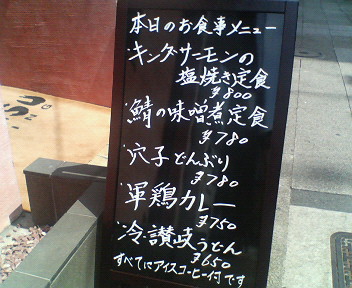 本日のお食事メニュー
キングサーモンの
塩焼き定食
¥800
鯖の味噌煮定食
¥780
穴子どんぶり
¥780
軍鶏カレー
¥750
冷・讃岐うどん
¥650
すべてにアイスコーヒー付です